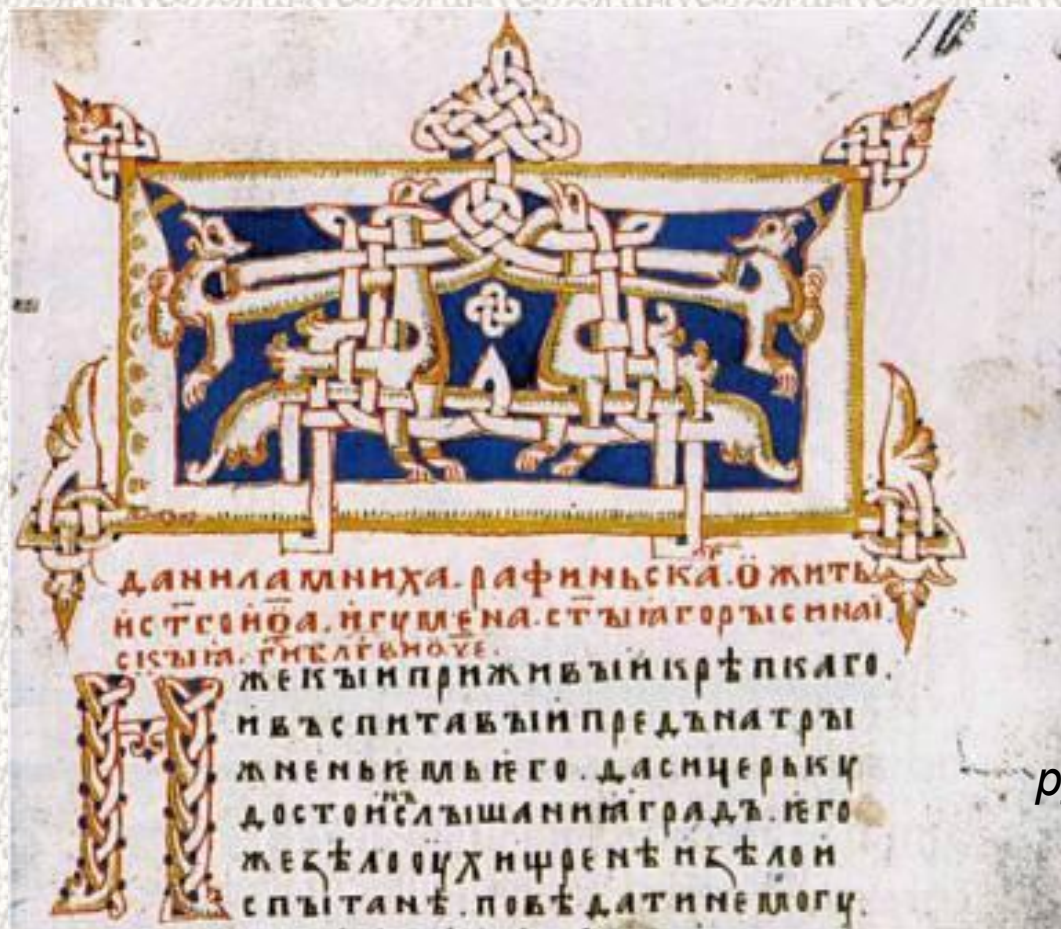 данила мниха. рафиньска. ѽ жить
и ст҃го ѻ҃ца. игꙋмена. ст҃ыꙗ горы синаі
скыꙗ. гн҃ блг҃ви ѻч҃е.
П жекыи приживыи крѣпкаго.
и въспитавыи предъ натры
жненьѥмь ѥго. да си церькꙋ
достоинъ слышаниꙗ градъ. ѥго
же ѕѣло оухищренѣ и ѕѣло и
спытанѣ. повѣдати не могꙋ.
р